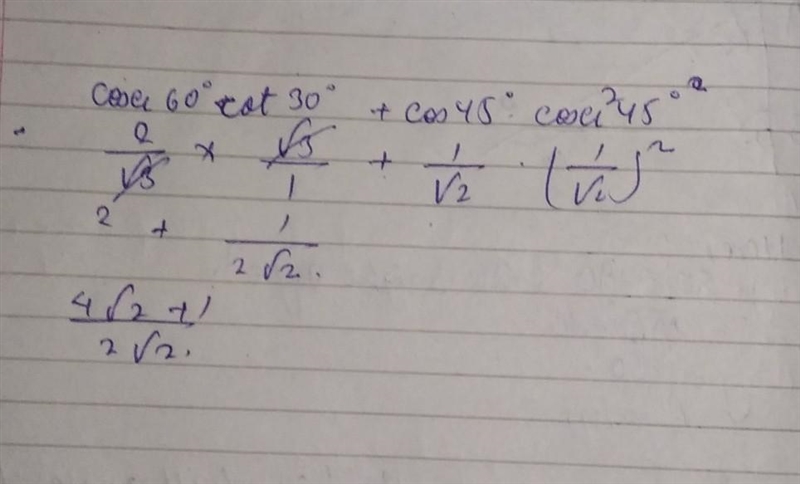 cosec 60° cot 30° + cos 45° cosec² 45°
2/√3 × √3/1 + 1/√2 · (1/√2)²
2 + 1/2√2.
4√2 + 1/2√2.